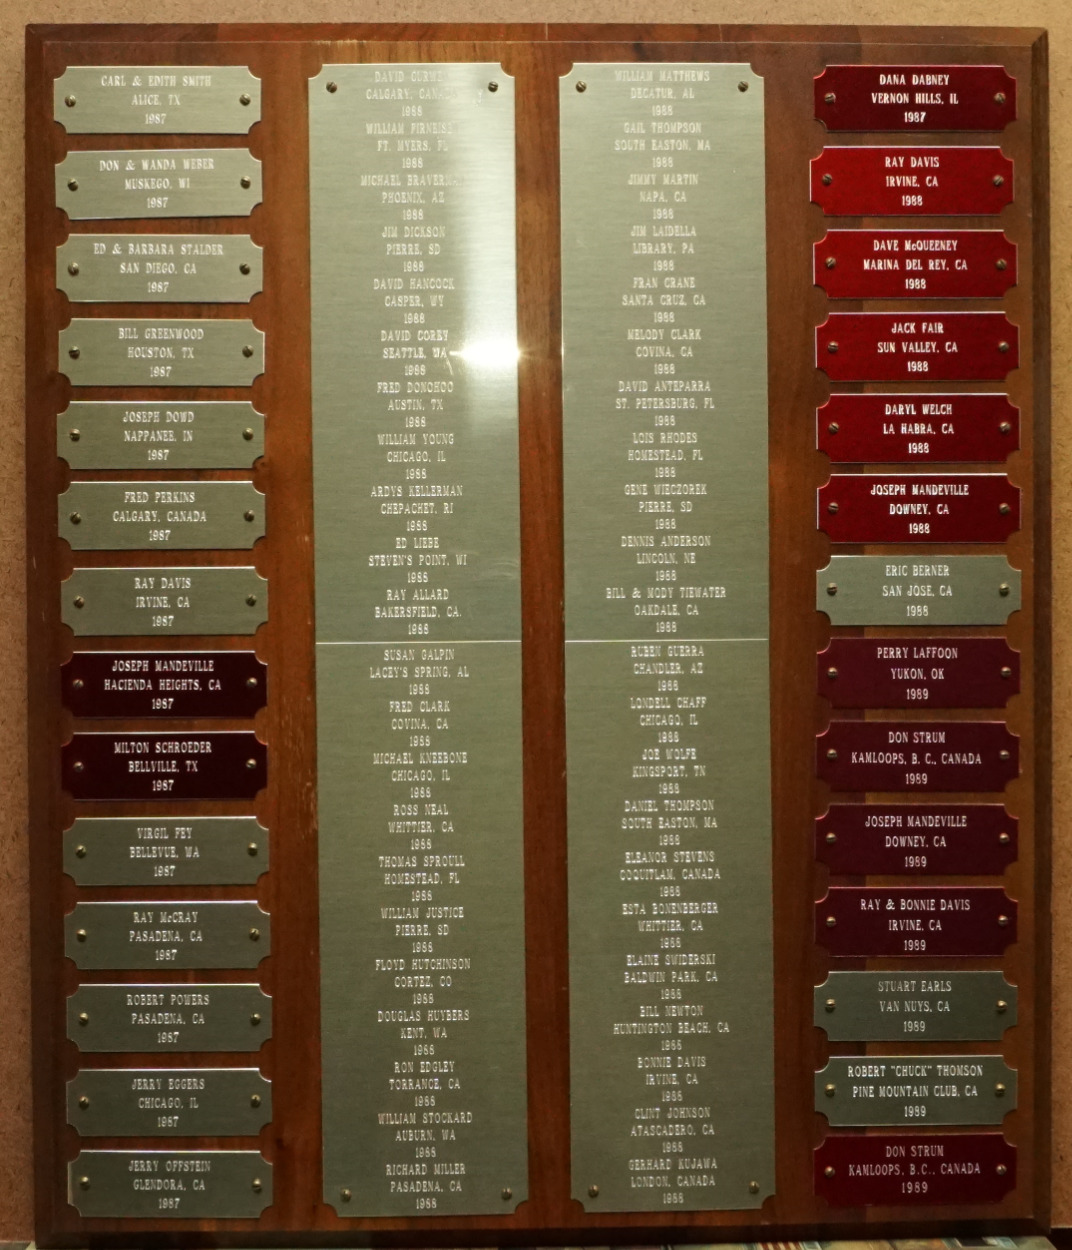 CARL & EDITH SMITH
ALICE, TX
1987
DON & WANDA WEBER
MUSKEGO, WI
1987
ED & BARBARA STALDER
SAN DIEGO, CA
1987
BILL GREENWOOD
HOUSTON, TX
1987
JOSEPH DOWD
NAPPANEE, IN
1987
FRED PERKINS
CALGARY, CANADA
1987
RAY DAVIS
IRVINE, CA
1987
JOSEPH MANDEVILLE
HACIENDA HEIGHTS, CA
1987
MILTON SCHROEDER
BELLVILLE, TX
1987
VIRGIL FEY
BELLEVUE, WA
1987
RAY McCRAY
PASADENA, CA
1987
ROBERT POWERS
PASADENA, CA
1987
JERRY EGGERS
CHICAGO, IL
1987
JERRY OFFSTEIN
GLENDORA, CA
1987
DAVID
CALGARY, CANADA
1988
WILLIAM
FT. MYERS, FL
1988
MICHAEL BRAVERMAN
PHOENIX, AZ
1988
JIM DICKSON
PIERRE, SD
1988
DAVID HANCOCK
CASPER, WY
1988
DAVID COREY
SEATTLE, WA
1988
FRED DONOHOO
AUSTIN, TX
1988
WILLIAM YOUNG
CHICAGO, IL
1988
ARDYS KELLERMAN
CHEPACHET, RI
1988
ED LIEBE
STEVEN'S POINT, WI
1988
RAY ALLARD
BAKERSFIELD, CA.
1988
SUSAN GALPIN
LACEY'S SPRING, AL
1988
FRED CLARK
COVINA, CA
1988
MICHAEL KNEEBONE
CHICAGO, IL
1988
ROSS NEAL
WHITTIER, CA
1988
THOMAS SPROULL
HOMESTEAD, FL
1988
WILLIAM JUSTICE
PIERRE, SD
1988
FLOYD HUTCHINSON
CORTEZ, CO
1988
DOUGLAS HUYBERS
KENT, WA
1988
RON EDGLEY
TORRANCE, CA
1988
WILLIAM STOCKARD
AUBURN, WA
1988
RICHARD MILLER
PASADENA, CA
1988
WILLIAM MATTHEWS
DECATUR, AL
1988
GAIL THOMPSON
SOUTH EASTON, MA
1988
JIMMY MARTIN
NAPA, CA
1988
JIM LAIDELLA
LIBRARY, PA
1988
FRAN CRANE
SANTA CRUZ, CA
1988
MELODY CLARK
COVINA, CA
1988
DAVID ANTEPARRA
ST. PETERSBURG, FL
1988
LOIS RHODES
HOMESTEAD, FL
1988
GENE WIECZOREK
PIERRE, SD
1988
DENNIS ANDERSON
LINCOLN, NE
1988
BILL & MODY TIEWATER
OAKDALE, CA
1988
RUBEN GUERRA
CHANDLER, AZ
1988
LONDELL CHAFF
CHICAGO, IL
1988
JOE WOLFE
KINGSPORT, TN
1988
DANIEL THOMPSON
SOUTH EASTON, MA
1988
ELEANOR STEVENS
COQUITLAM, CANADA
1988
ESTA BONENBERGER
WHITTIER, CA
1988
ELAINE SWIDERSKI
BALDWIN PARK, CA
1988
BILL NEWTON
HUNTINGTON BEACH, CA
1988
BONNIE DAVIS
IRVINE, CA
1988
CLINT JOHNSON
ATASCADERO, CA
1988
GERHARD KUJAWA
LONDON, CANADA
1988
DANA DABNEY
VERNON HILLS, IL
1987
RAY DAVIS
IRVINE, CA
1988
DAVE McQUEENEY
MARINA DEL REY, CA
1988
JACK FAIR
SUN VALLEY, CA
1988
DARYL WELCH
LA HABRA, CA
1988
JOSEPH MANDEVILLE
DOWNEY, CA
1988
ERIC BERNER
SAN JOSE, CA
1988
PERRY LAFFOON
YUKON, OK
1989
DON STRUM
KAMLOOPS, B. C., CANADA
1989
JOSEPH MANDEVILLE
DOWNEY, CA
1989
RAY & BONNIE DAVIS
IRVINE, CA
1989
STUART EARLS
VAN NUYS, CA
1989
ROBERT "CHUCK" THOMSON
PINE MOUNTAIN CLUB, CA
1989
DON STRUM
KAMLOOPS, B.C., CANADA
1989